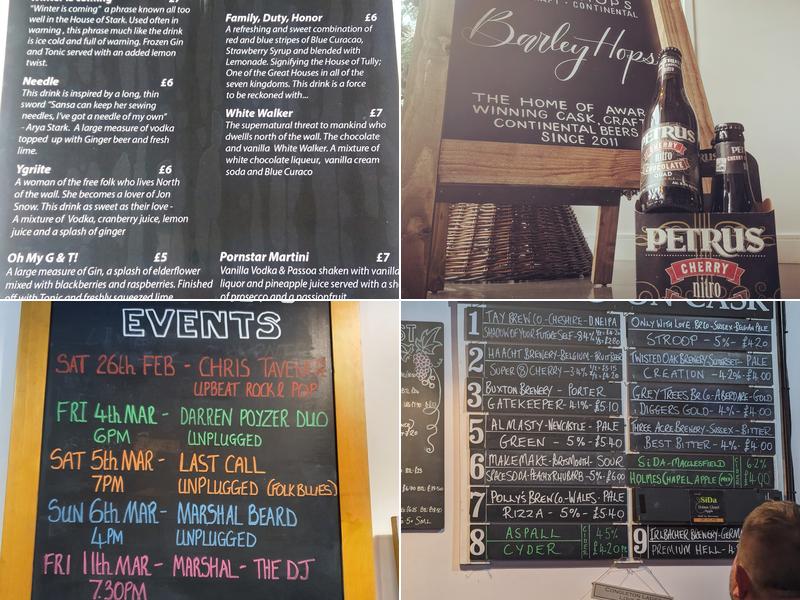 "Winter is coming" a phrase known all too
well in the House of Stark. Used often in
warning, this phrase much like the drink
is ice cold and full of warning. Frozen Gin
and Tonic served with an added lemon
twist.
Needle £6
This drink is inspired by a long, thin
sword "Sansa can keep her sewing
needles, I've got a needle of my own"
- Arya Stark. A large measure of vodka
topped up with Ginger beer and fresh
lime.
Ygriite £6
A woman of the free folk who lives North
of the wall. She becomes a lover of Jon
Snow. This drink as sweet as their love -
A mixture of Vodka, cranberry juice, lemon
juice and a splash of ginger
Oh My G & T! £5
A large measure of Gin, a splash of elderflower
mixed with blackberries and raspberries. Finished
off with Tonic and freshly squeezed lime
Family, Duty, Honor £6
A refreshing and sweet combination of
red and blue stripes of Blue Curacao,
Strawberry Syrup and blended with
Lemonade. Signifying the House of Tully;
One of the Great Houses in all of the
seven kingdoms. This drink is a force
to be reckoned with...
White Walker £7
The supernatural threat to mankind who
dwells north of the wall. The chocolate
and vanilla White Walker. A mixture of
white chocolate liqueur, vanilla cream
soda and Blue Curaco
Pornstar Martini £7
Vanilla Vodka & Passoa shaken with vanilla
liquor and pineapple juice served with a
of prosecco and a passionfruit.
CONTINENTAL
Barley Hops
THE HOME OF AWAR
WINNING CASK, CRAFT
CONTINENTAL BEERS
SINCE 2011
PETRUS
CHERRY
nitro
CHOCOLATE
QUAD
PETRUS
CHERRY
nitro
EVENTS
SAT 26th FEB - CHRIS TAVENER
UPBEAT ROCK & POP
FRI 4th MAR - DARREN POYZER DUO
6PM UNPLUGGED
SAT 5th MAR - LAST CALL
7PM UNPLUGGED (FOLK BLUES)
SUN 6th MAR - MARSHAL BEARD
4PM UNPLUGGED
FRI 11th MAR - MARSHAL - THE DJ
7.30PM
ON CASK
1 JAY BREW CO - CHESHIRE - DNEIPA
SHADOW OF YOUR FUTURE SELF
2 HAACHT BREWERY - BELGIUM - FRUIT BEER
SUPER 8 CHERRY
3 BUXTON BREWERY - PORTER
GATEKEEPER - 4.1% - £5.10
5 ALMASTY - NEWCASTLE - PALE
GREEN - 5% - £5.40
6 MAKEMAKE - PORTSMOUTH - SOUR
SPACE SODA - PEACH & RHUBARB - 5%
7 POLLY'S BREW CO - WALES - PALE
RIZZA - 5% - £5.40
8 ASPALL
CYDER 4.5% £4.20
ONLY WITH LOVE BR. CO - SUSSEX - BELGIAN PALE
STROOP - 5% - £4.20
TWISTED OAK BREWERY SOMERSET - PALE
CREATION - 4.2% - £4.00
GREY TREES BR. CO - ABERDARE - GOLD
DIGGERS GOLD - 4% - £4.00
THREE ACRE BREWERY - SUSSEX - BITTER
BEST BITTER - 4% - £4.00
SiDA - MACCLESFIELD 6.2%
HOLMES CHAPEL APPLE £4.00
SiDa
9 BREWERY - GERM
PREMIUM HELL - 4
CONGLETON